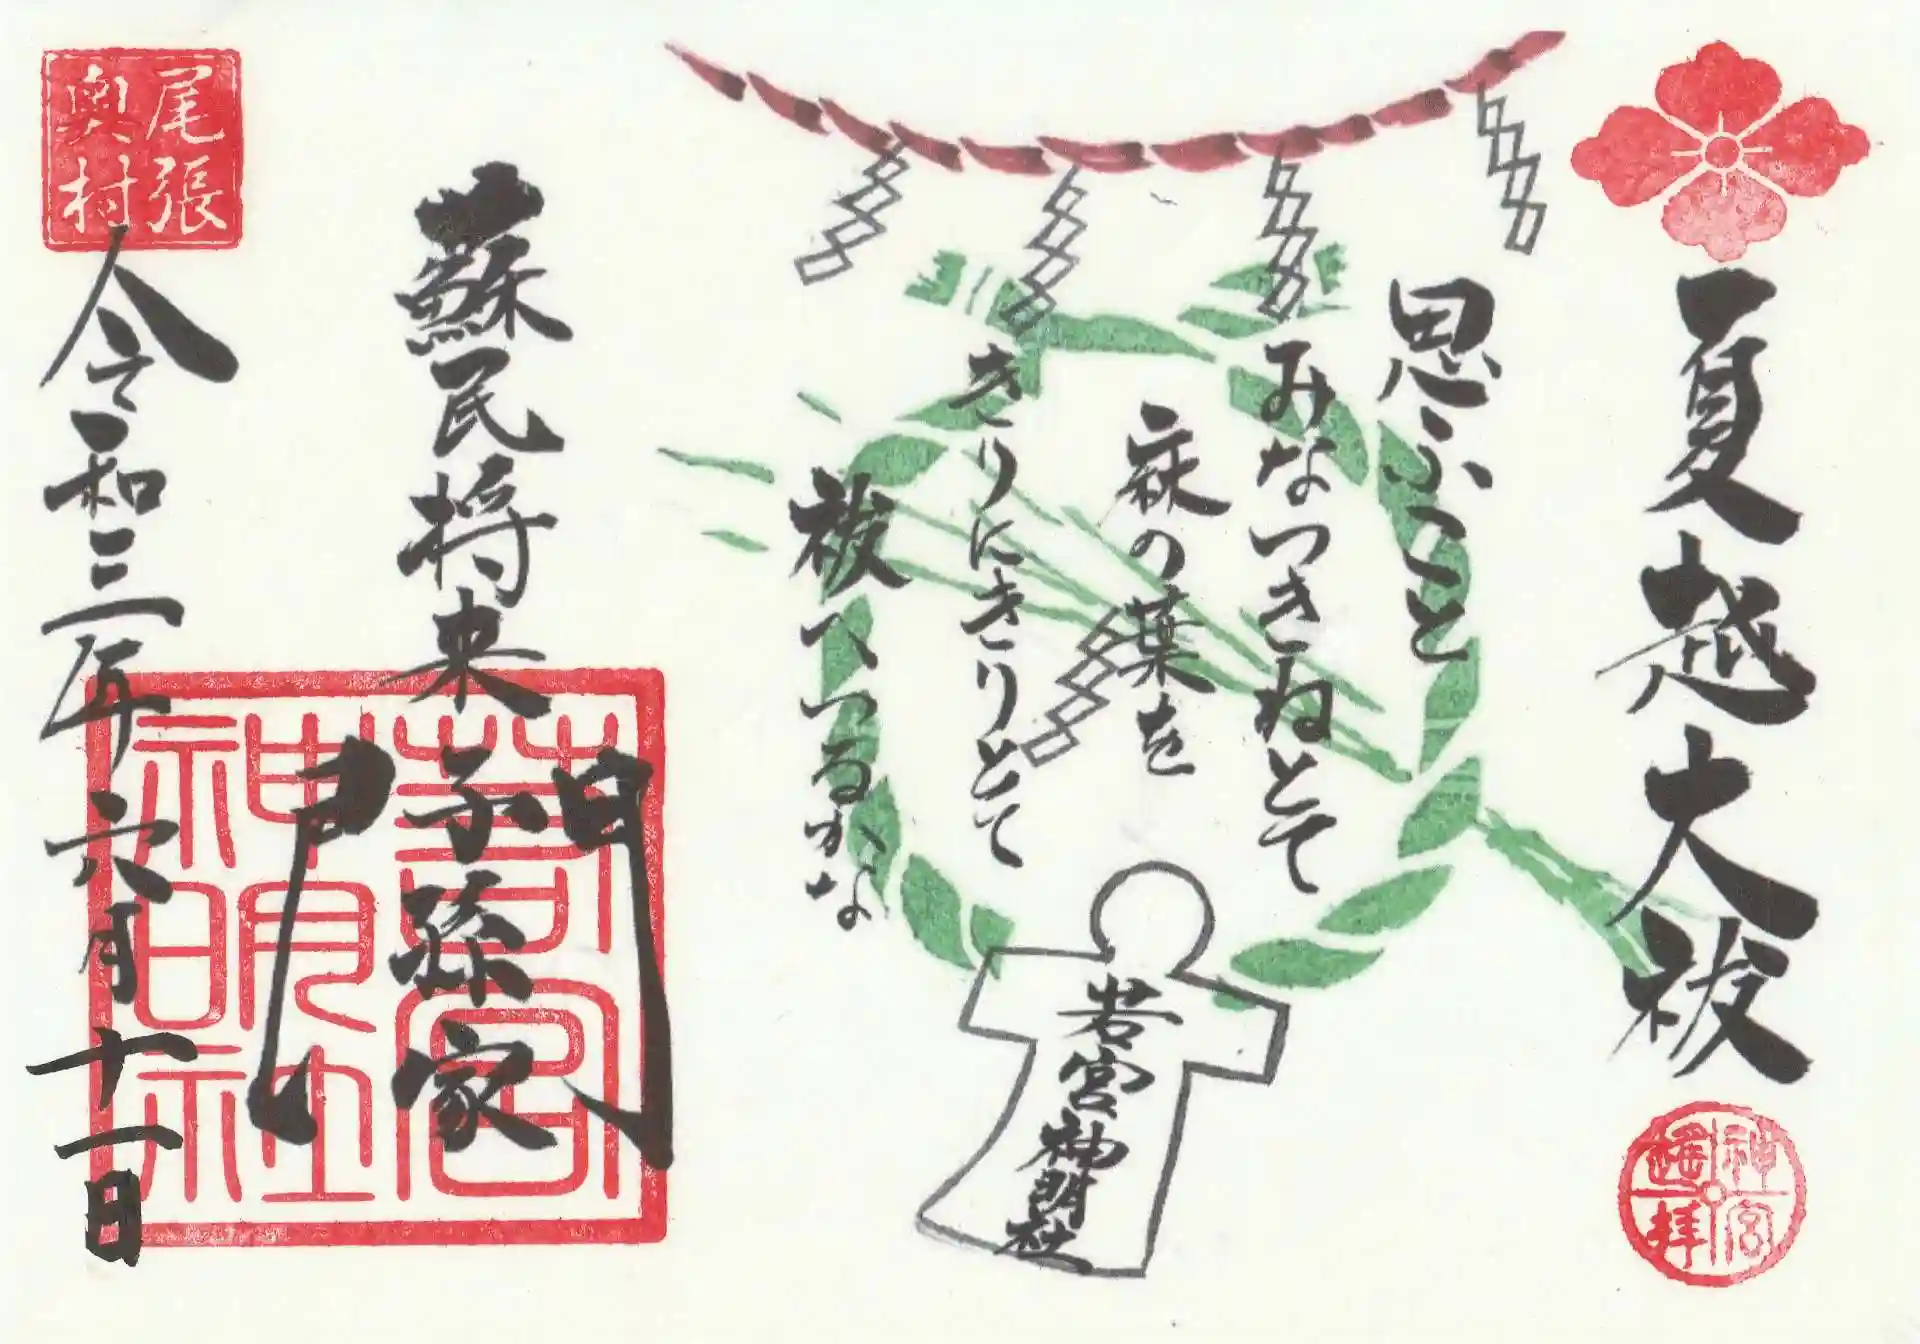 夏越大祓
神宮遥拝
思ふこと
みなつきねとて
麻の葉を
きりにきりとて
祓へつるかな
若宮神明社
蘇民将来
子孫家
門
若宮
神明社
尾張
奥村
令和三年六月十一日